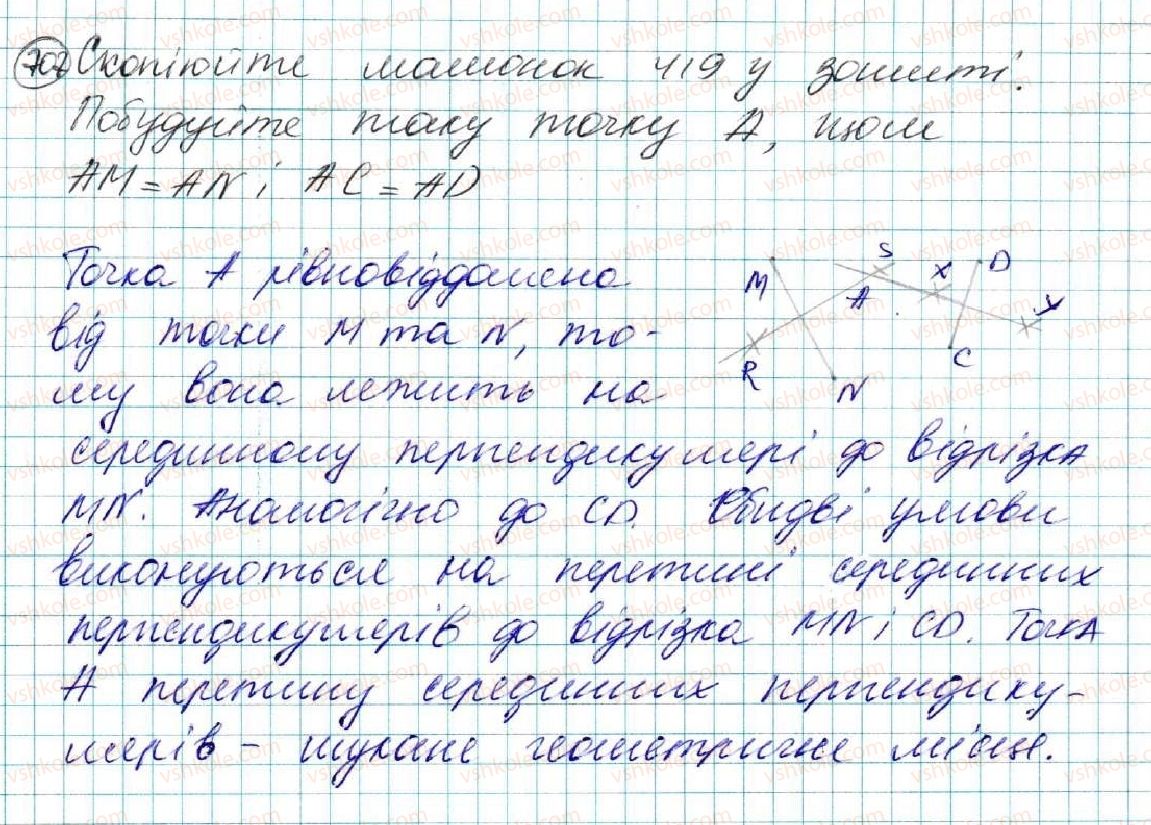 707 Скопіюйте малюнок 419 у зошиті.
Побудуйте таку точку А, щом
AM = AN і AC = AD
Точка А рівновіддалена
від точки M та N, то-
му вона лежить на
серединному перпендикулярі до відрізка
MN. Аналогічно до CD. Обидві умови
виконуються на перетині серединних
перпендикулярів до відрізка MN і CD. Точка
А перетину серединних перпендику-
лярів – шукане геометричне місце.
S
M
X
D
A
Y
R
C
N
vshkole.com